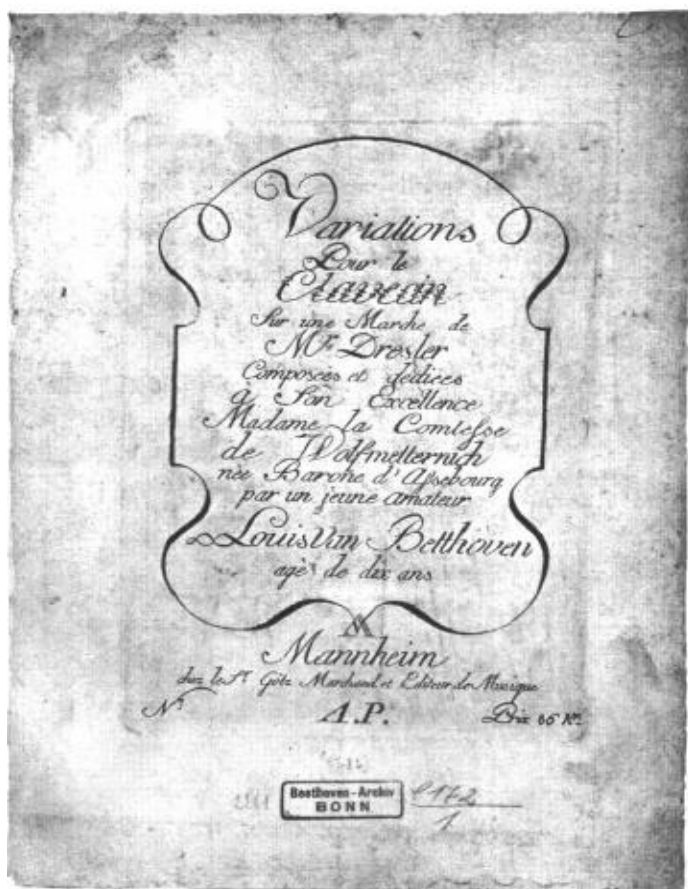 Variations
Pour le
Clavecin
Sur une Marche de
Mr. Dresler
Composées et dediées
à Son Excellence
Madame la Comtesse
de Wolfmetternich
née Baronne d'Assebourg
par un jeune amateur
Louis van Betthoven
agé de dix ans
Mannheim
chez le Sr. Götz Marchand et Editeur de Musique
A.P.
Prix
Beethoven-Archiv
BONN